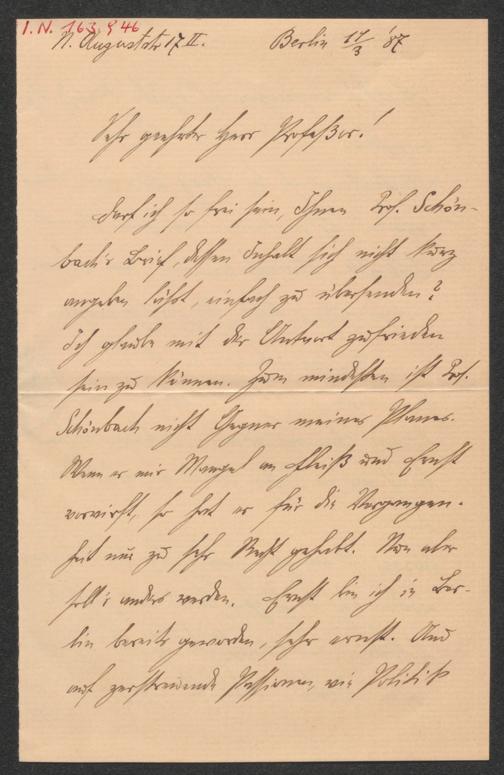 I.N. 163.946
N. Auguststr 17 II. Berlin 17/3 '87
Sehr geehrter Herr Profeßor!
Darf ich so frei sein, Ihnen Prof. Schön-
bach's Brief, dessen Inhalt sich nicht kurz
angeben läßt, einfach zu übersenden?
Ich glaube mit der Antwort zufrieden
sein zu können. Zum mindesten ist Prof.
Schönbach nicht Gegner meines Planes.
Wenn er mir Mangel an Fleiß und Ernst
vorwirft, so hat er für die Vergangen-
heit nur zu sehr Recht gehabt. Nun aber
soll's anders werden. Ernst bin ich in Ber-
lin bereits geworden, sehr ernst. Und
auf zerstreuende Passionen, wie Politik